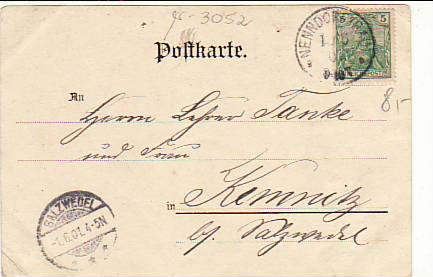 -3052
NENNDORF
5
Postkarte.
8,-
An
Herrn Lehrer Tanke
und Frau
in Kemnitz
b/ Salzwedel
SALZWEDEL
-1.6.01.4-5N